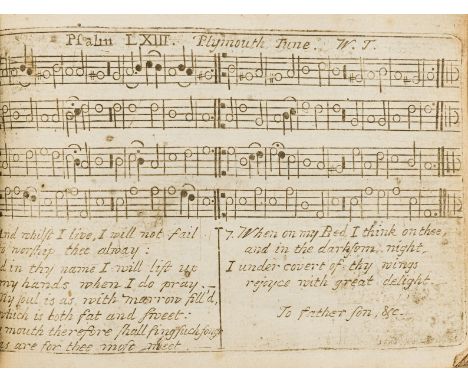 Psalm LXIII. Plymouth Tune. W. T.
And whilst I live, I will not fail
to worship thee alway:
d in thy name I will lift up
my hands, when I do pray:
My soul is as with marrow fill'd,
which is both fat and sweet:
mouth therefore shall sing such songs
as are for thee most meet.
7. When on my Bed I think on thee,
and in the darksom night,
I under covert of thy wings
rejoyce with great delight.
To father son, &c.